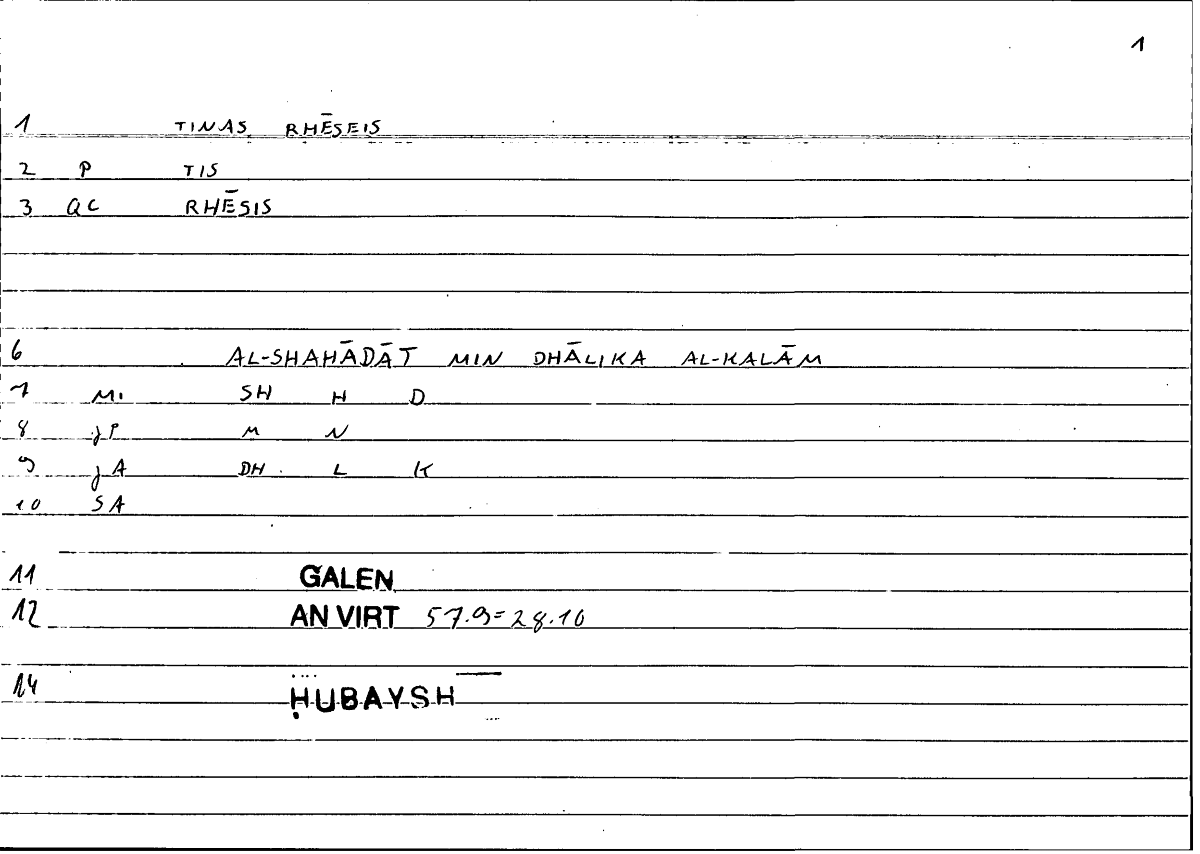 1
1 TINAS RHĒSEIS
2 P TIS
3 QC RHĒSIS
6 AL-SHAHĀDĀT MIN DHĀLIKA AL-KALĀM
7 M. SH H D
8 jP M N
9 jA DH. L K
10 SA
11 GALEN
12 AN VIRT 57.9=28.10
14 ḤUBAYSH